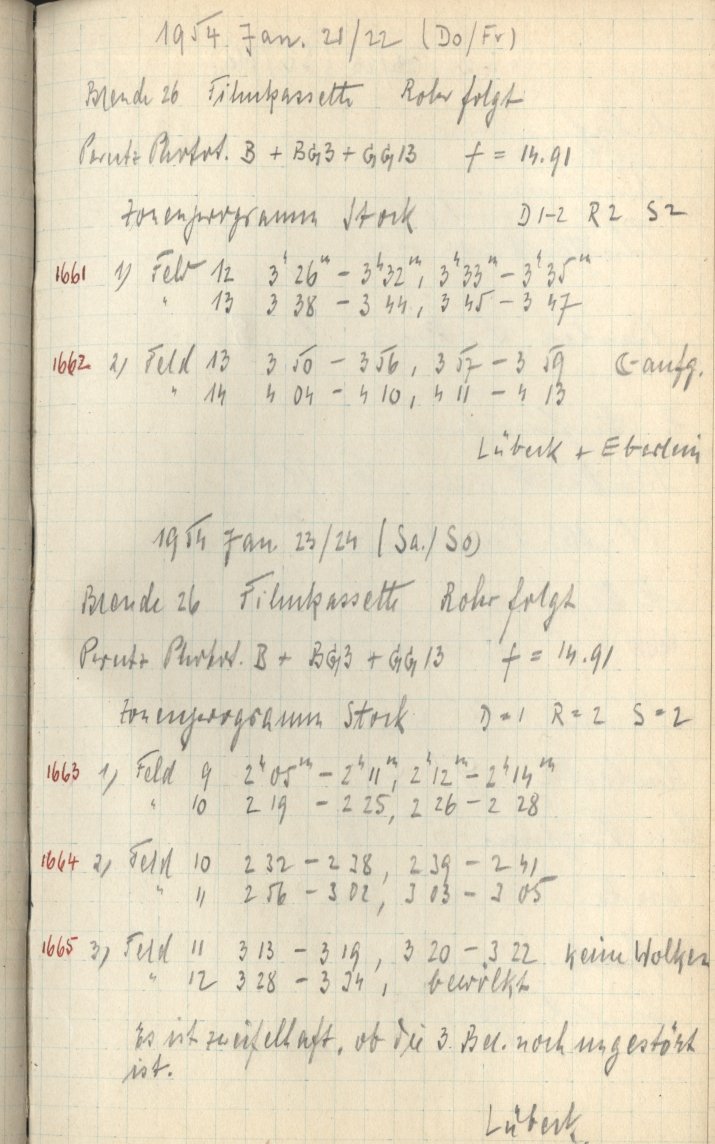 1954 Jan. 21/22 (Do/Fr)
Blende 26 Filmkassette Rohr folgt
Perutz Photot. B + BG3 + GG13 f = 14.91
Zonenprogramm Stock D1-2 R2 S2
1661 1) Feld 12 3h 26m - 3h 32m, 3h 33m - 3h 35m
" 13 3 38 - 3 44, 3 45 - 3 47
1662 2) Feld 13 3 50 - 3 56, 3 57 - 3 59 ☾-aufg.
" 14 4 04 - 4 10, 4 11 - 4 13
Lübeck + Eberlein
1954 Jan. 23/24 (Sa./So)
Blende 26 Filmkassette Rohr folgt
Perutz Photot. B + BG3 + GG13 f = 14.91
Zonenprogramm Stock D=1 R=2 S=2
1663 1) Feld 9 2h 05m - 2h 11m, 2h 12m - 2h 14m
" 10 2 19 - 2 25, 2 26 - 2 28
1664 2) Feld 10 2 32 - 2 38, 2 39 - 2 41
" 11 2 56 - 3 02, 3 03 - 3 05
1665 3) Feld 11 3 13 - 3 19, 3 20 - 3 22 keine Wolken
" 12 3 28 - 3 34, bewölkt
Es ist zweifelhaft, ob die 3. Bel. noch ungestört
ist.
Lübeck